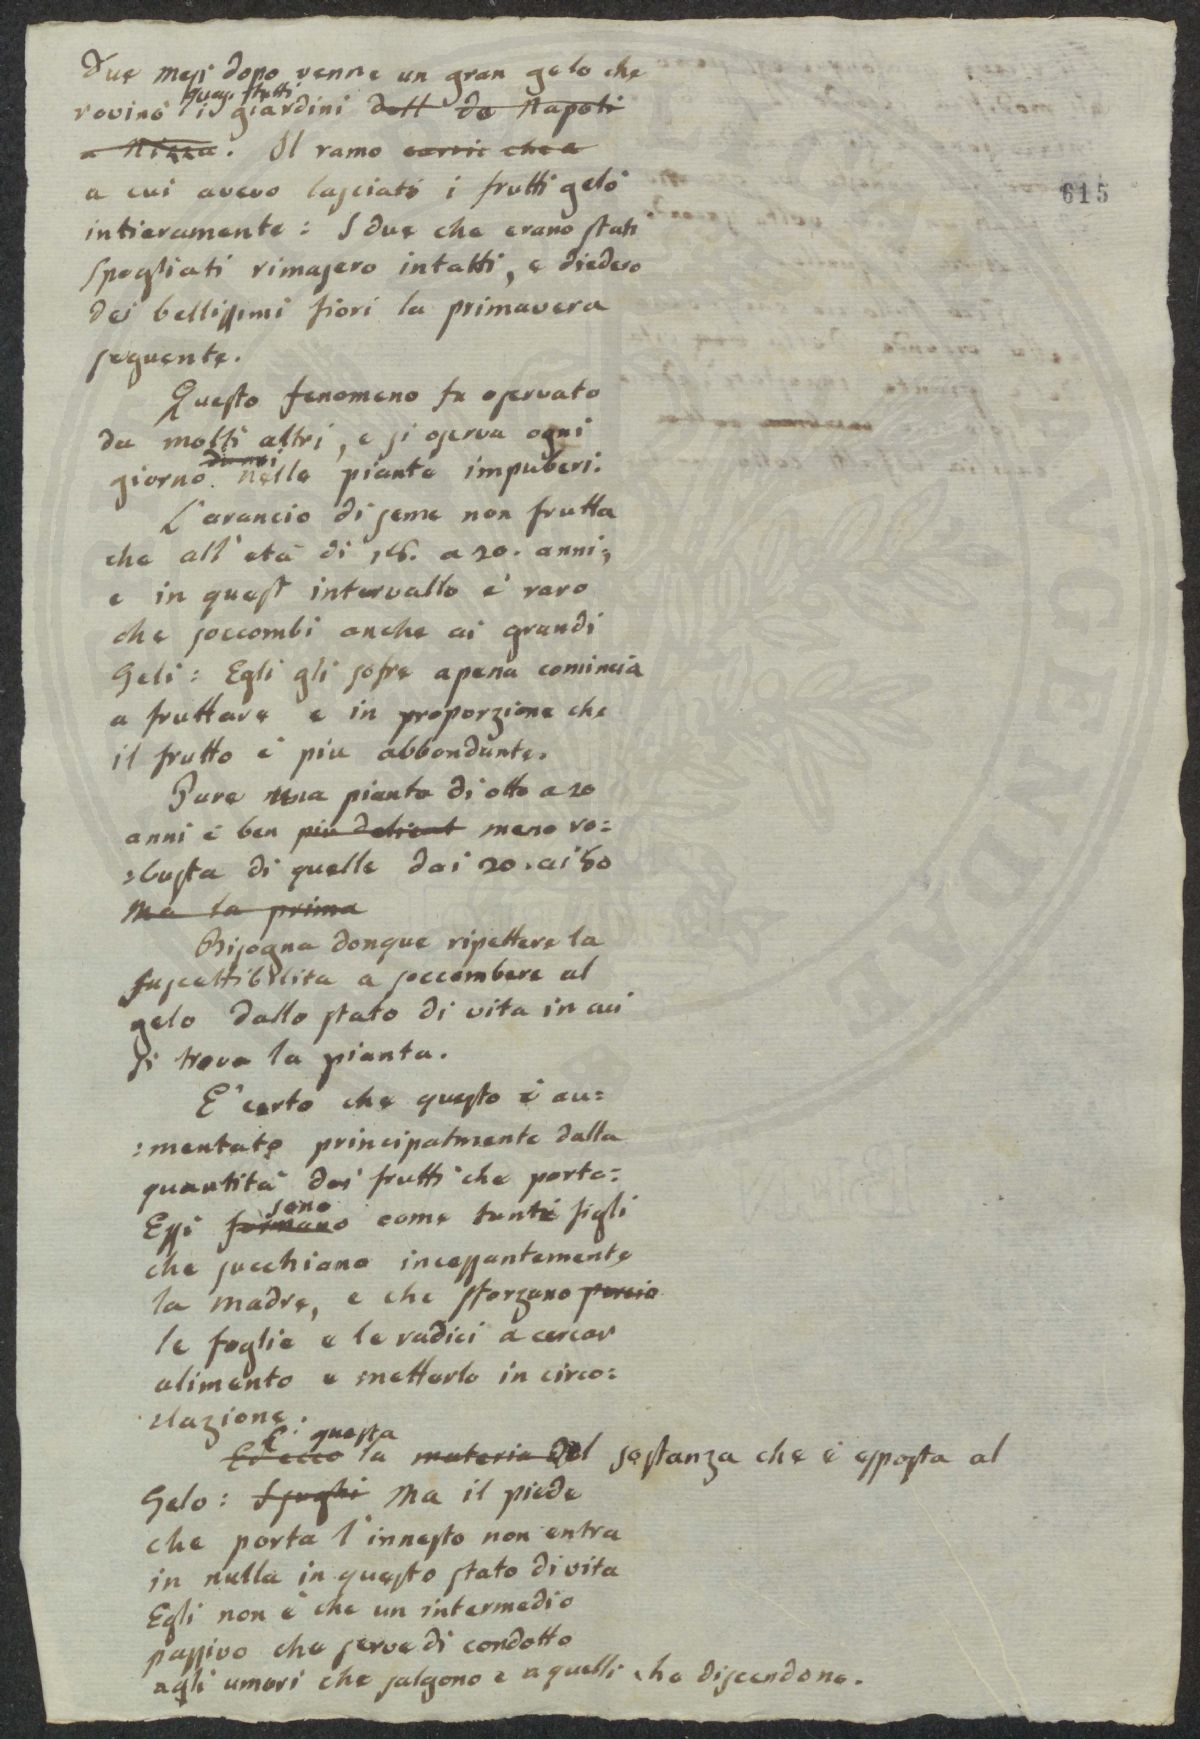 Due mesi dopo venne un gran gelo che
quasi tutti
rovinò i giardini dell da Napoli
a Nizza. Il ramo che a
a cui avevo lasciati i frutti gelò
intieramente: I due che erano stati
spogliati rimasero intatti, e diedero
dei bellissimi fiori la primavera
seguente.
Questo fenomeno fu oservato
da molti altri, e si oserva ogni
giorno nelle piante impuberi.
L'arancio di seme non frutta
che all'età di 16. a 20. anni,
e in quest intervallo è raro
che soccombi anche ai grandi
Geli: Egli gli sofre apena comincia
a fruttare e in proporzione che
il frutto è piu abbondante.
Pure una pianta di otto a 20
anni è ben piu delicat meno ro=
=busta di quelle dai 20. ai 60
Ma la prima
Bisogna donque ripettere la
suscettibilita a soccombere al
gelo dallo stato di vita in cui
si trova la pianta.
E' certo che questo è au=
=mentato principalmente dalla
quantità dei frutti che porta=
sono
Essi formano come tanti figli
che succhiano incessantemente
la madre, e che sforzano percio
le foglie e le radici a cercar
alimento e metterlo in circo=
=lazione.
E' questa
Ed ecco la materia del sostanza che è esposta al
Gelo: I sughi Ma il piede
che porta l'innesto non entra
in nulla in questo stato di vita
Egli non è che un intermedio
passivo che serve di condotto
agli umori che salgono e a quelli che discendono.
615